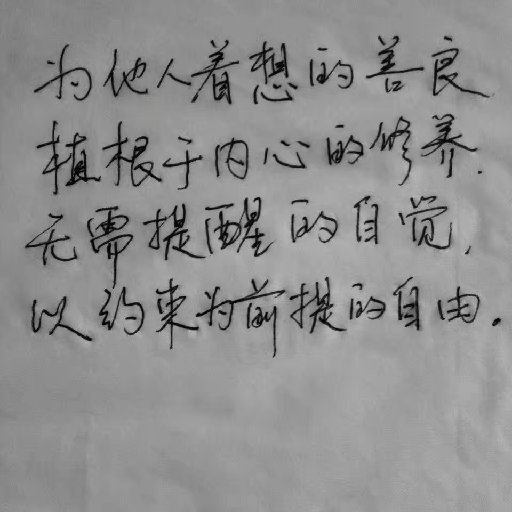 为他人着想的善良
植根于内心的修养.
无需提醒的自觉,
以约束为前提的自由。